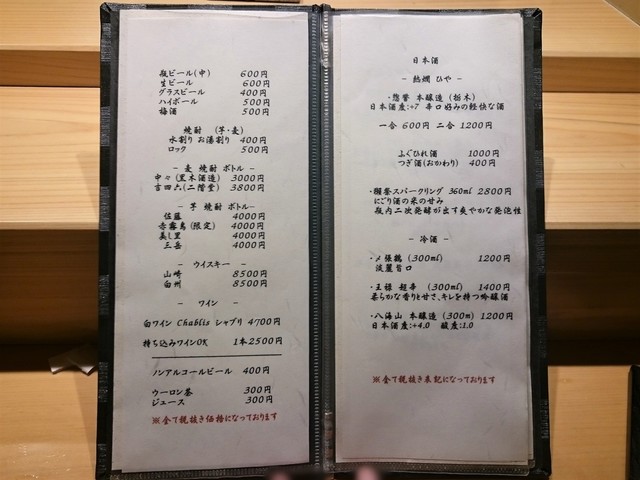 瓶ビール(中) 600円
生ビール 600円
グラスビール 400円
ハイボール 500円
梅酒 500円
焼酎 (芋・麦)
水割り お湯割り 400円
ロック 500円
- 麦 焼酎 ボトル -
中々(黒木酒造) 3000円
吉四六(二階堂) 3800円
- 芋 焼酎 ボトル-
佐藤 4000円
赤霧島(限定) 4000円
美し里 4000円
三岳 4000円
- ウイスキー -
山崎 8500円
白州 8500円
- ワイン -
白ワイン Chablis シャブリ 4700円
持ち込みワインOK 1本2500円
ノンアルコールビール 400円
ウーロン茶 300円
ジュース 300円
※全て税抜き価格になっております
日本酒
- 熱燗 ひや -
・惣誉 本醸造 (栃木)
日本酒度:+7 辛口好みの軽快な酒
一合 600円 二合 1200円
ふぐひれ酒 1000円
つぎ酒(おかわり) 400円
・願誉スパークリング 360ml 2800円
にごり酒の米の甘み
瓶内二次発酵が出す爽やかな発泡性
- 冷酒 -
・〆張鶴 (300ml) 1200円
淡麗旨口
・王禄 超辛 (300ml) 1400円
柔らかな香りと甘さ、キレを持つ吟醸酒
・八海山 本醸造 (300m) 1200円
日本酒度:+4.0 酸度:1.0
※全て税抜き表記になっております